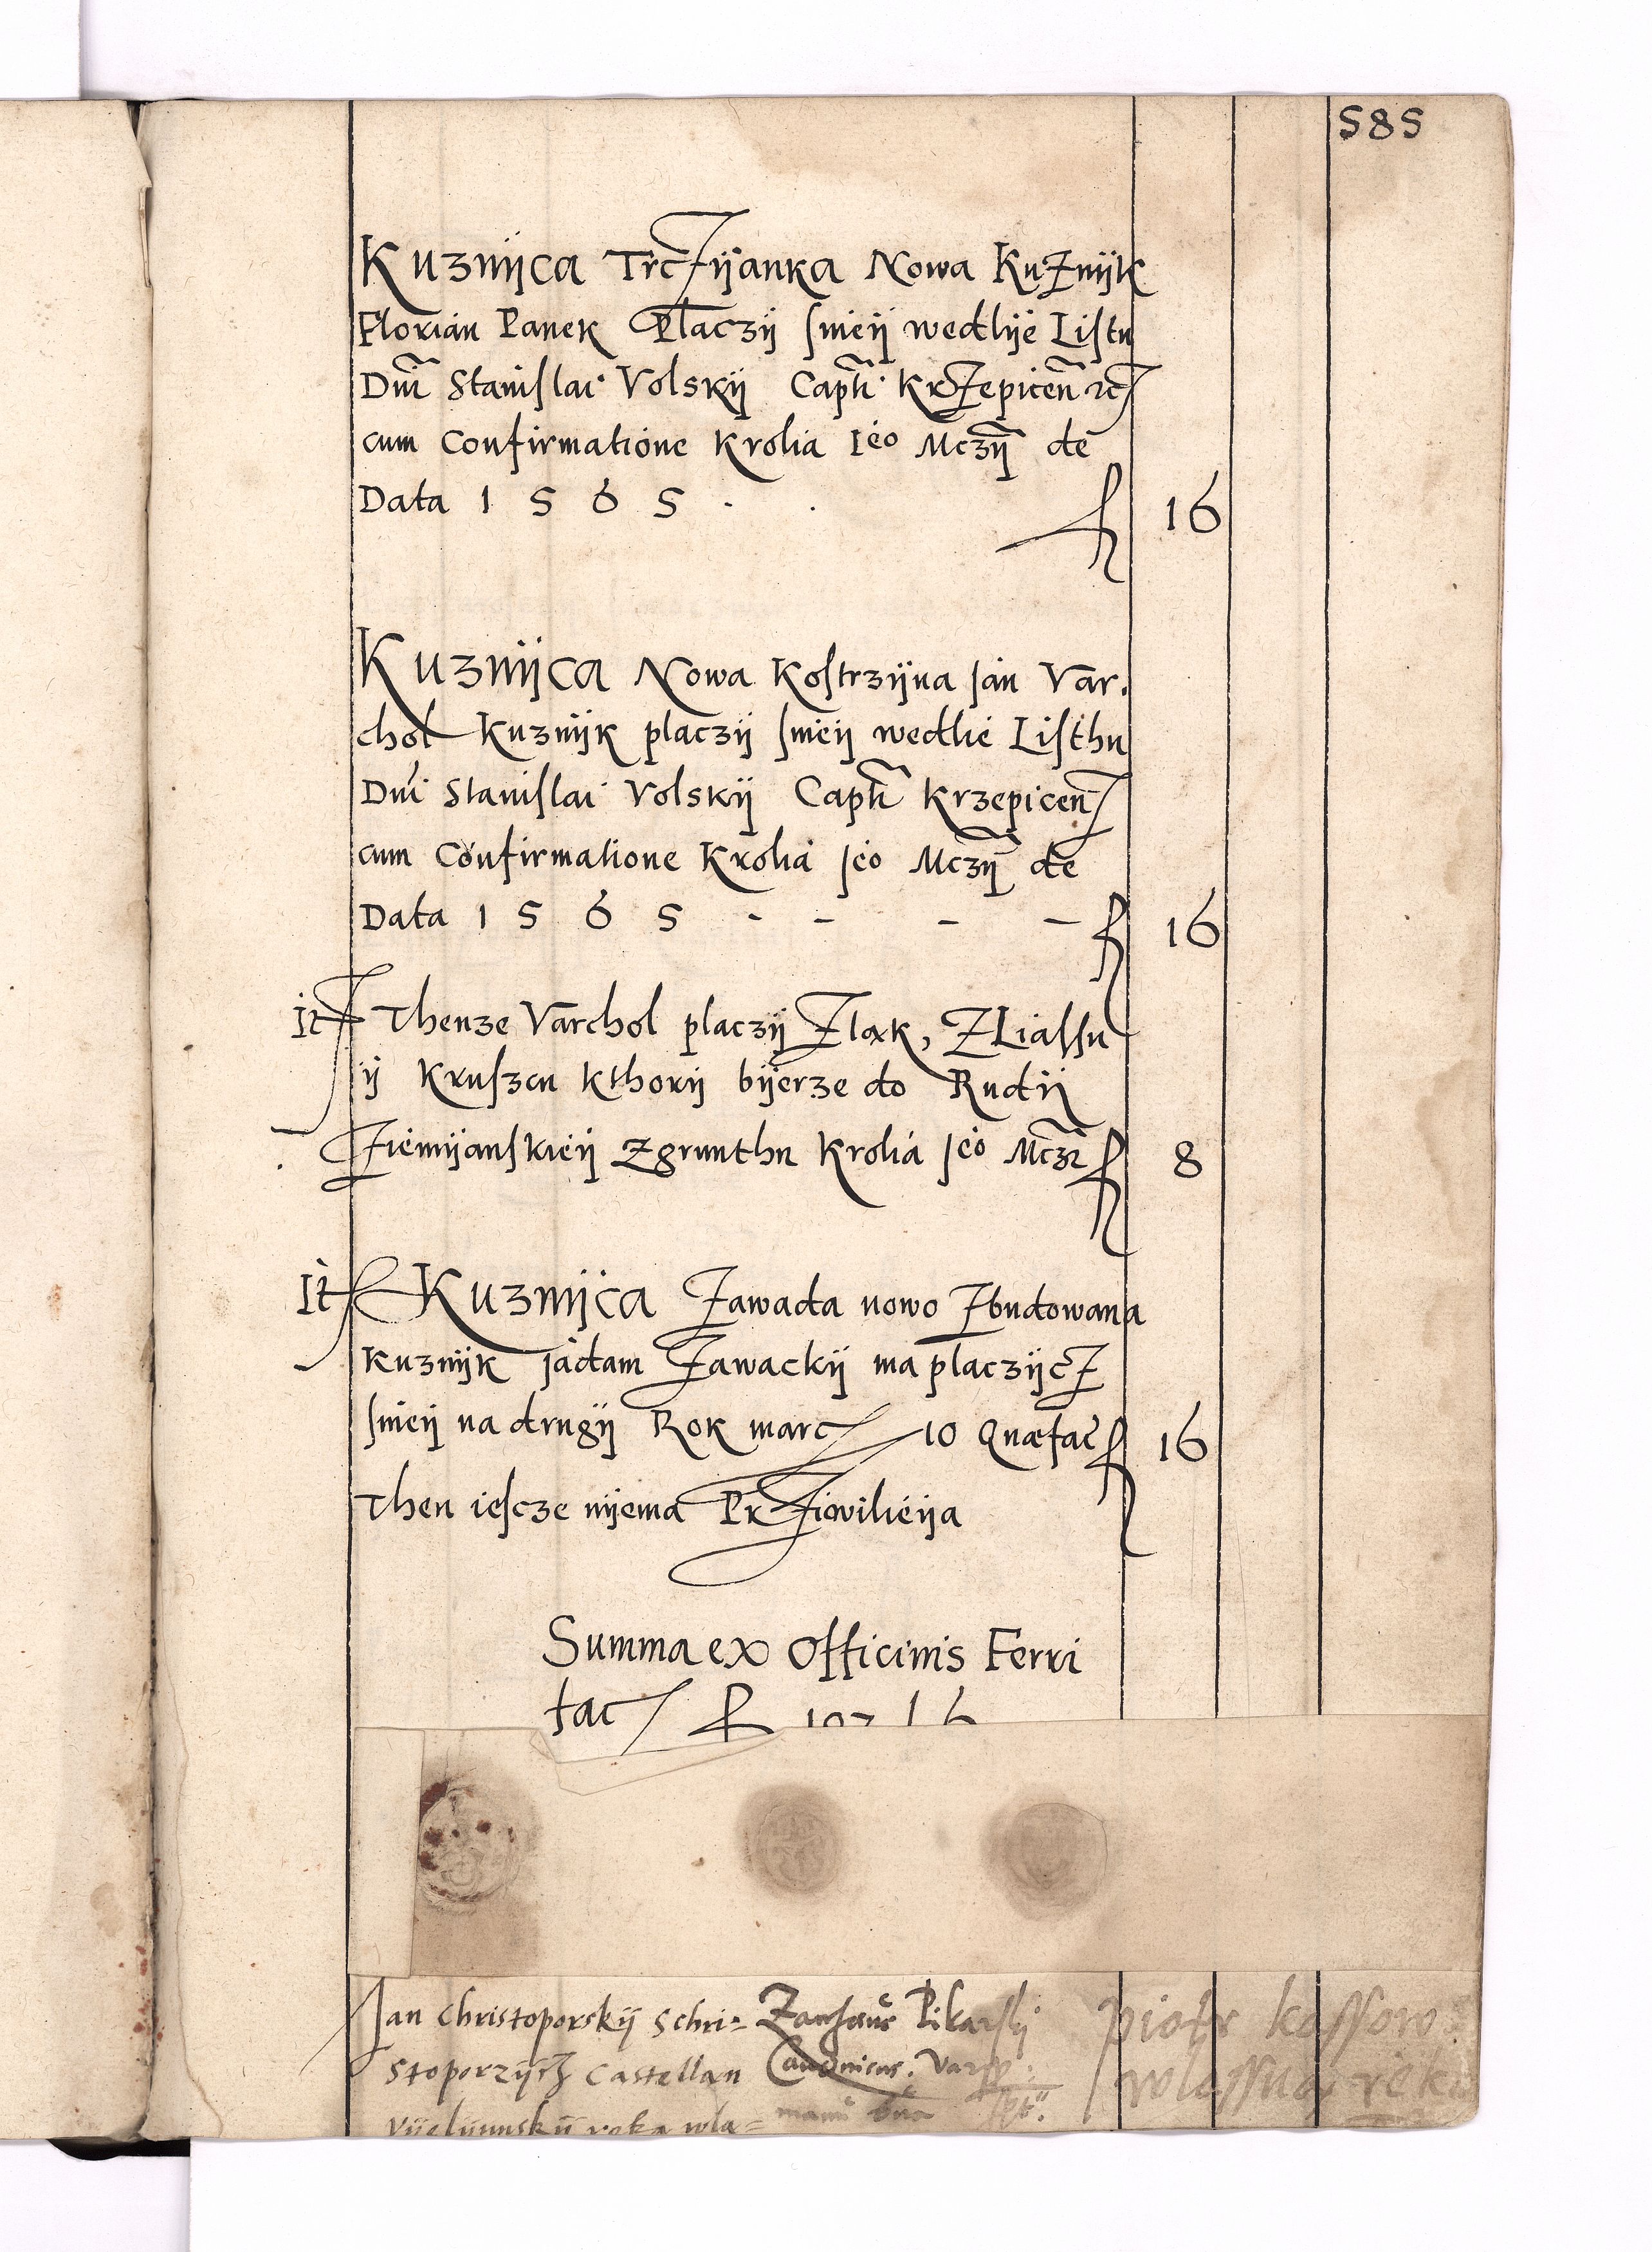 585
Kuznijca Trczijanka Nowa Kuznijk
Florian Panek Placzij snieij wedlije Listu
Dni Stanislai Volskij Captn Krzepicen etc
cum Confirmatione Krolia Ieo Mczij de
Data 1 5 6 5 . . f 16
Kuznijca Nowa Kostrzijna Jan Var.
chol Kuznijk placzij snieij wedlie Listhu
Dni Stanislai Volskij Captn Krzepicen
cum Confirmatione Krolia Jeo Mczij de
Data 1 5 6 5 - - - - f 16
It Thenze Varchol placzij Ztak, ZLiassu
ij Kruszcu kthorij bijerze do Rudij
Ziemijanskieij Zgrunthu Krolia Jeo Mczi f 8
It Kuznijca Zawada nowo Zbudowana
Kuznijk Jadam Zawackij ma placzijcz
snieij na drugij Rok marc 10 Quae fac f 16
Then iescze nijema Prziwilieija
Summa ex Officinis Ferri
fac f
Jan Christoporskij Schri=
stoporzijcz Castellan
Vijelijunskij reka wla=
Pikarski
Canonicus. Vars
manu
piotr kossow
wlassną reką